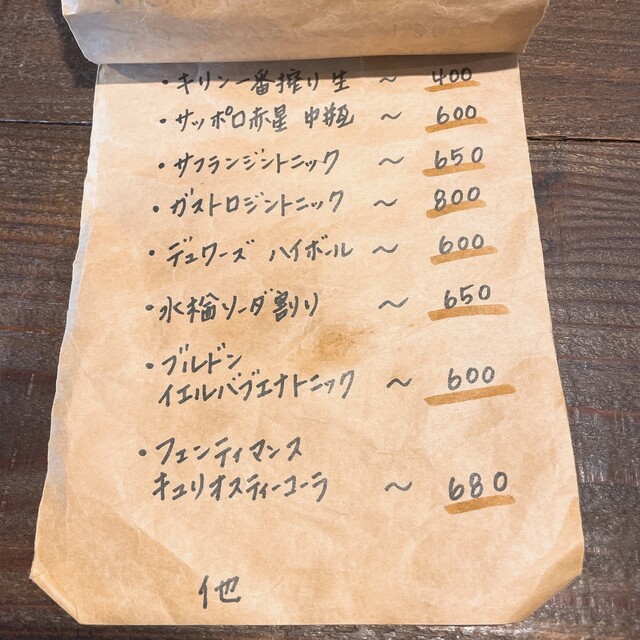 ・キリン一番搾り生 〜 400
・サッポロ赤星 中瓶 〜 600
・サフランジントニック 〜 650
・ガストロジントニック 〜 800
・デュワーズ ハイボール 〜 600
・水楢ソーダ割り 〜 650
・ブルドン
イエルバブエナトニック 〜 600
・フェンティマンス
キュリオスティーコーラ 〜 680
他